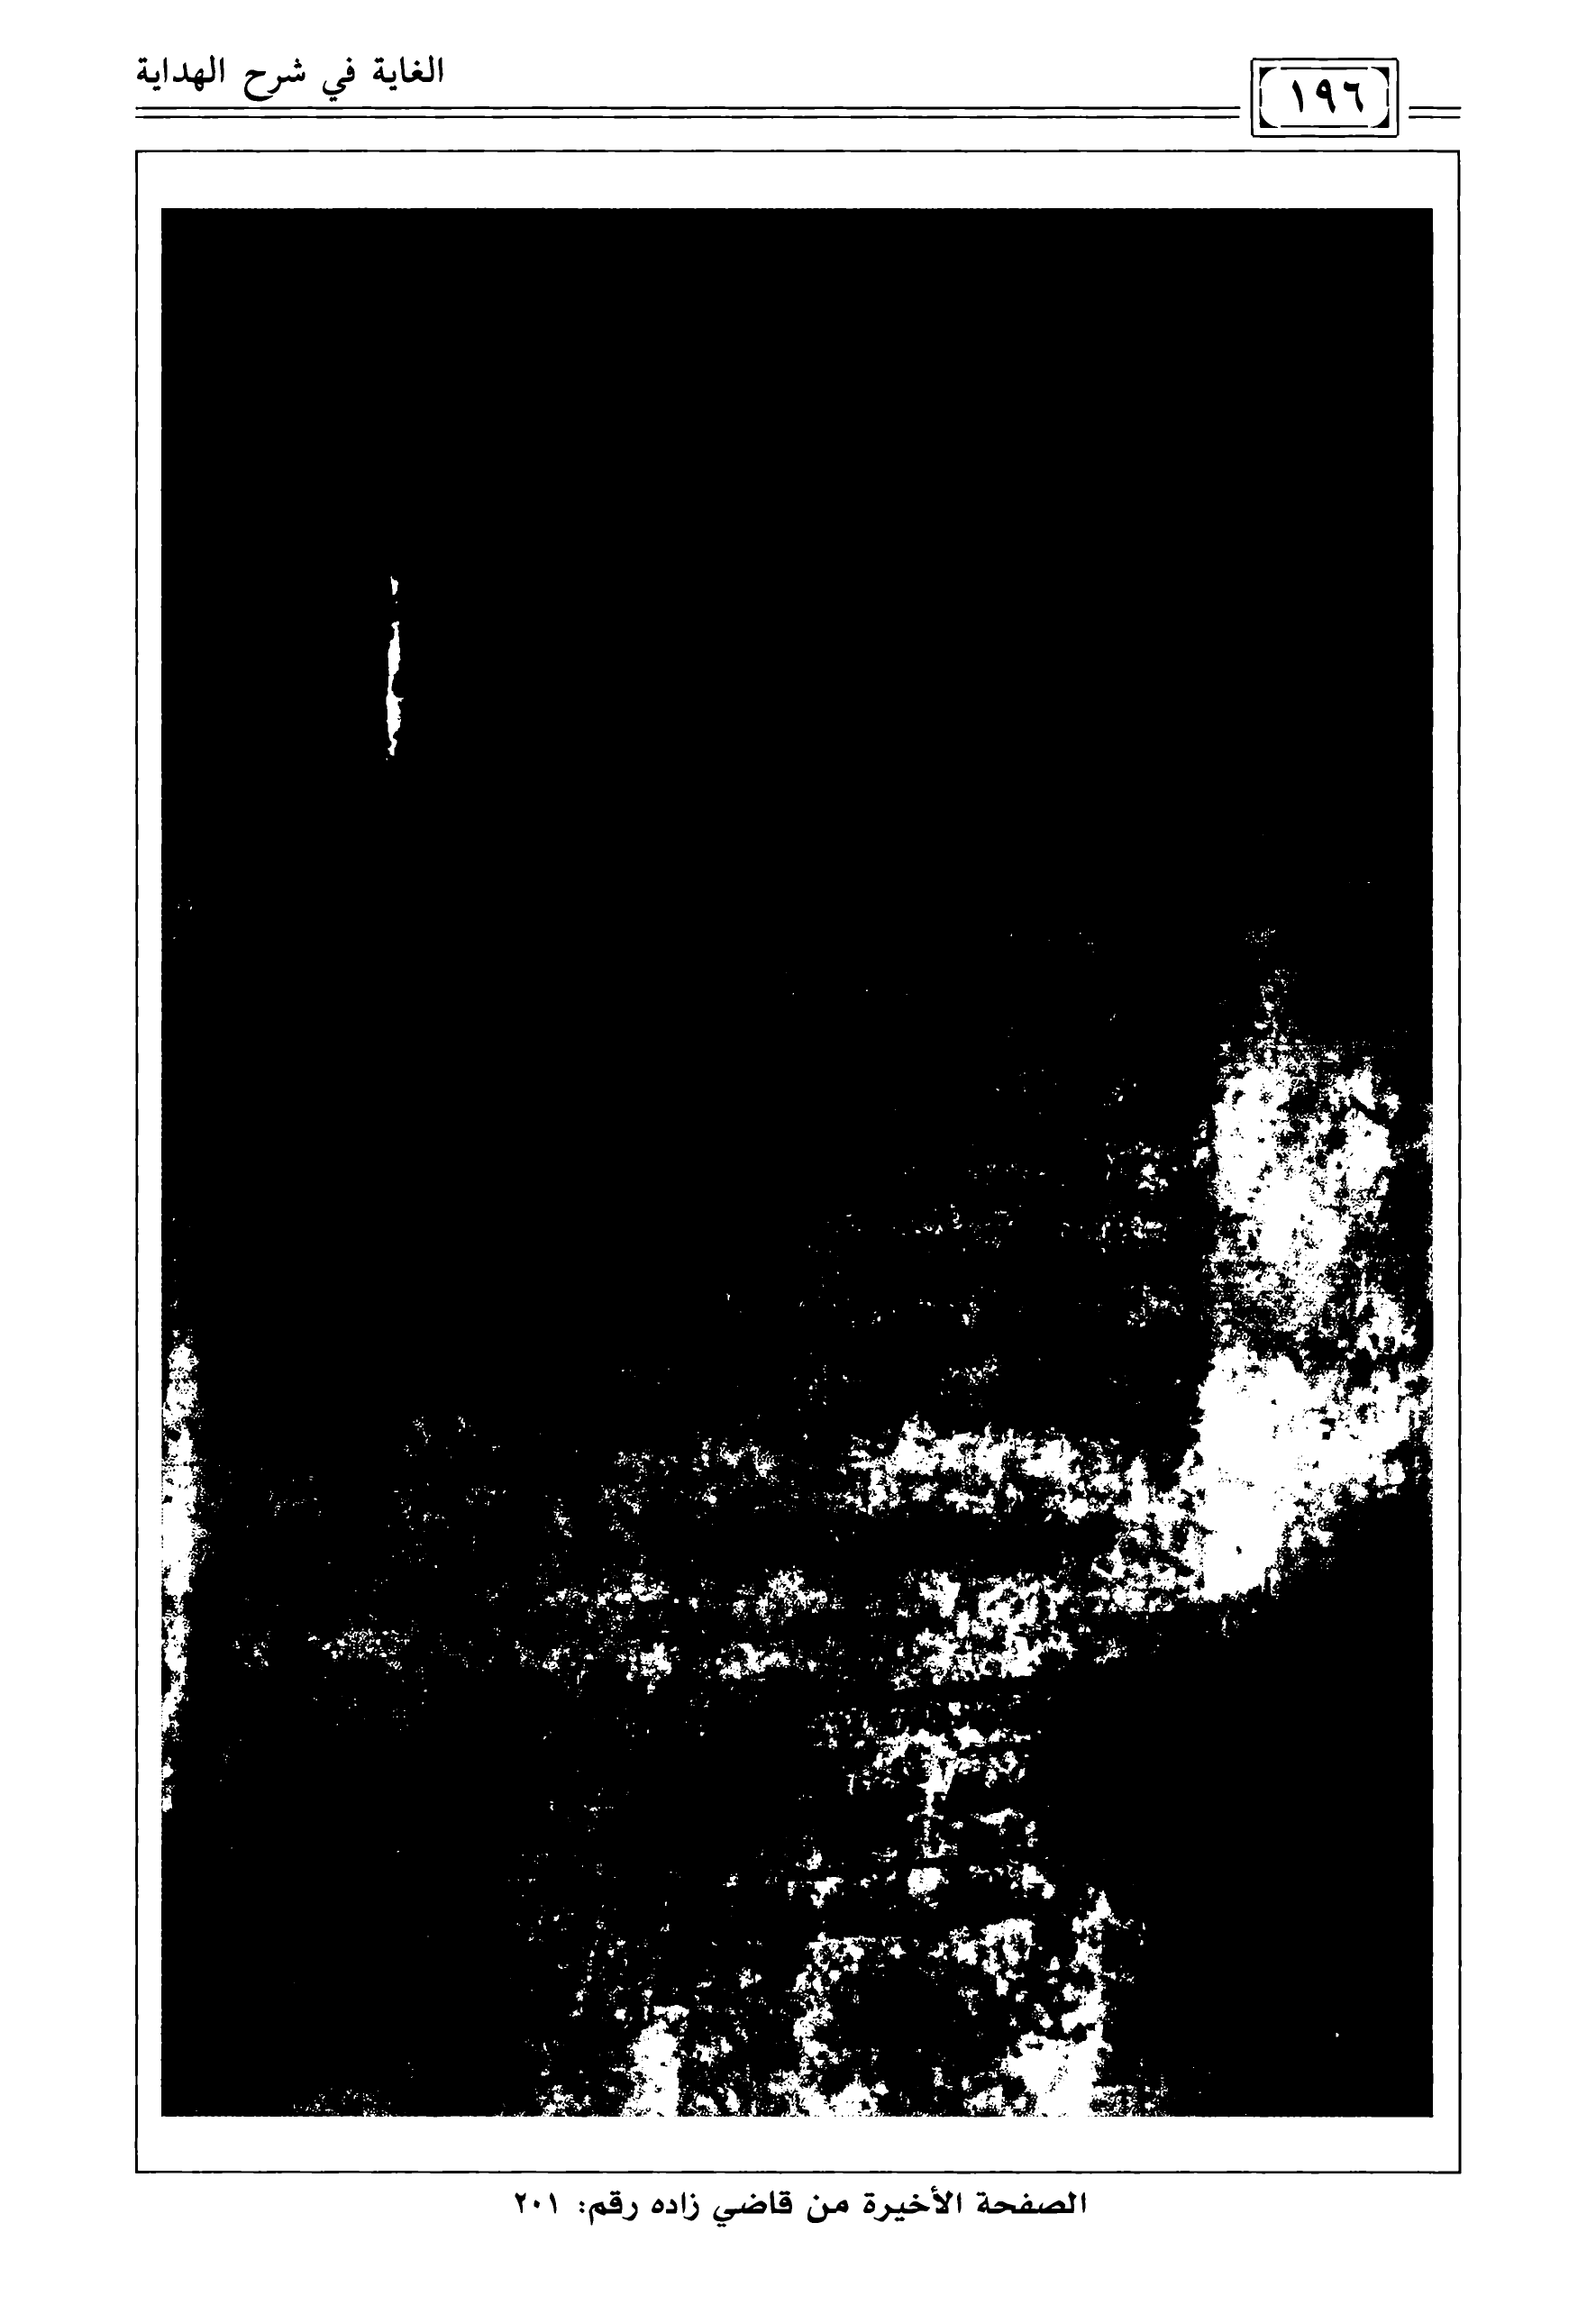 ١٩٦
الغاية في شرح الهداية
الصفحة الأخيرة من قاضي زاده رقم: ٢٠١